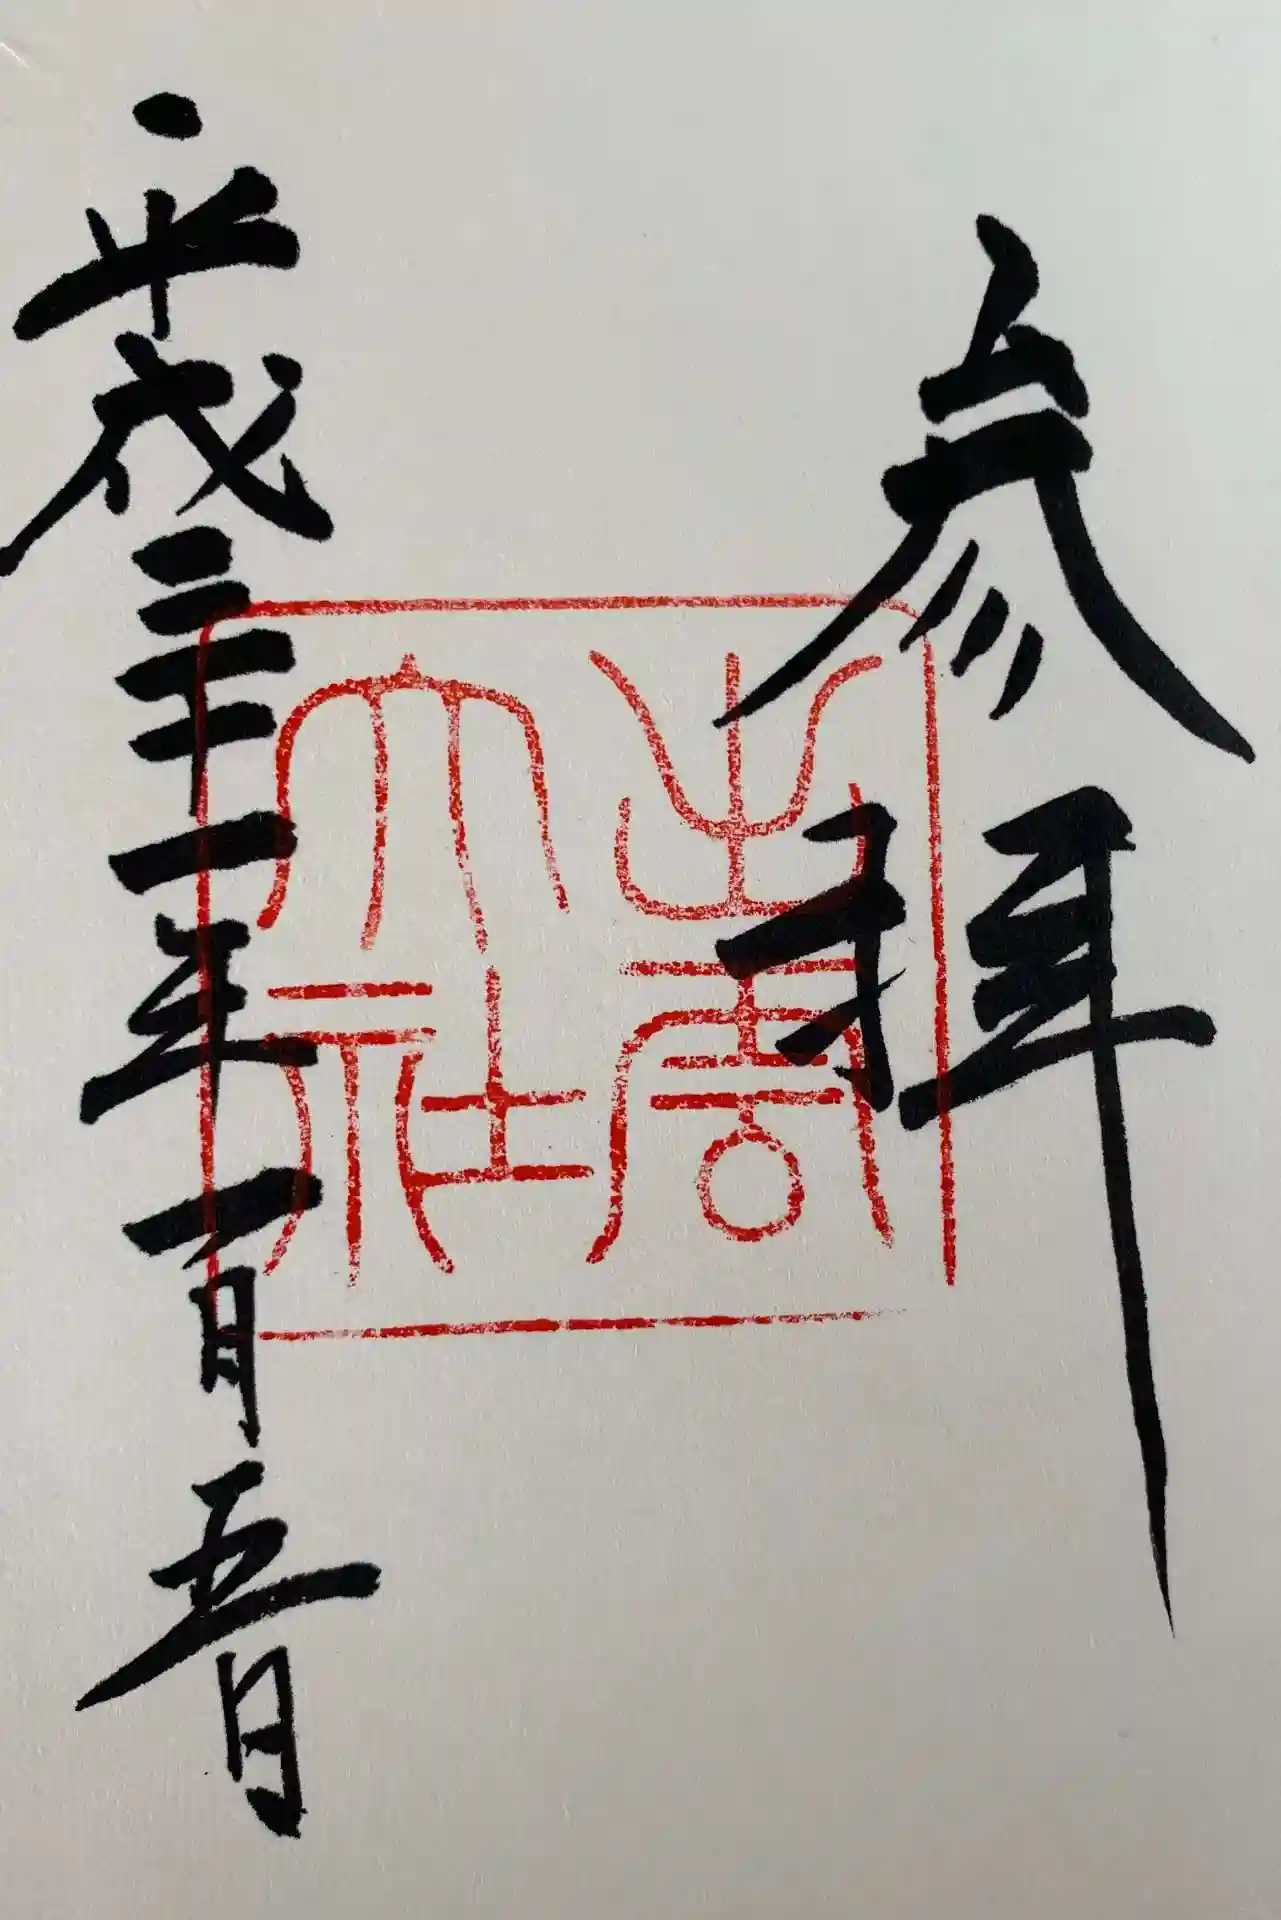 参拝
出雲
大社
平成三十一年一月五日